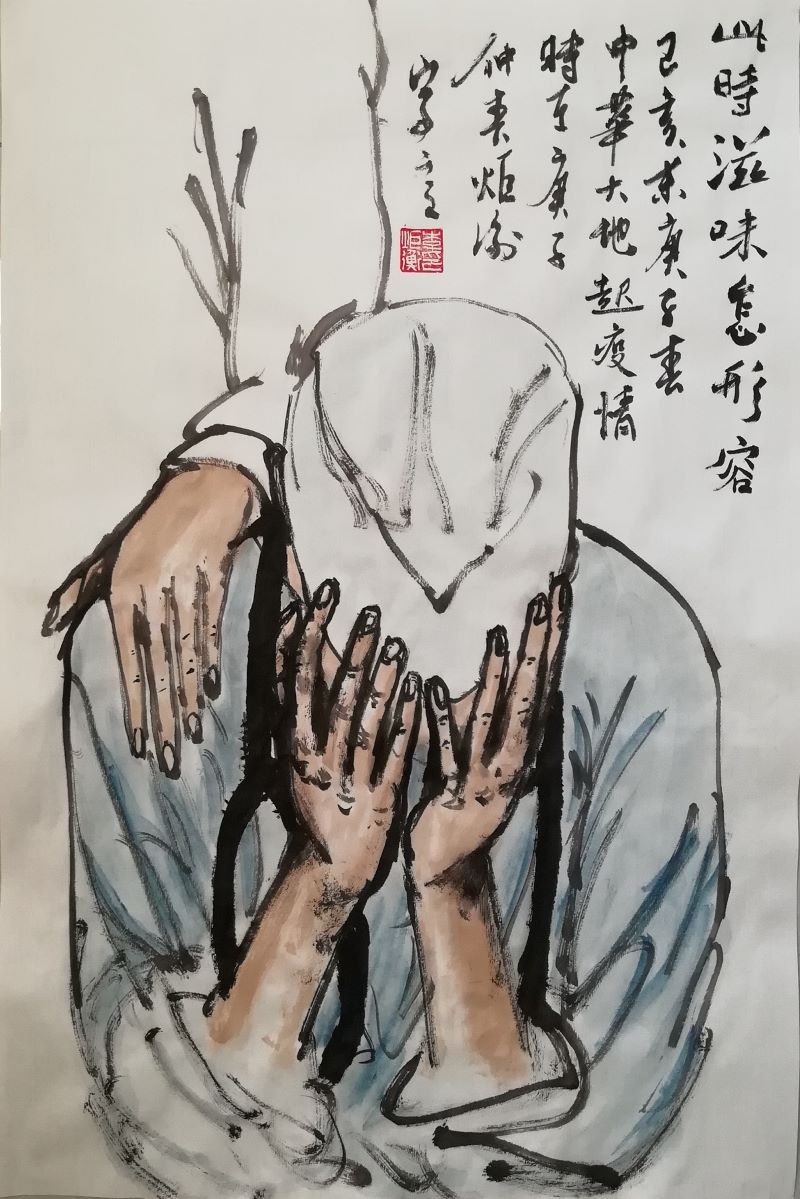 此時滋味怎形容
己亥末庚子春
中華大地起疫情
時在庚子
仲春炬衡
寫之
李印
炬衡